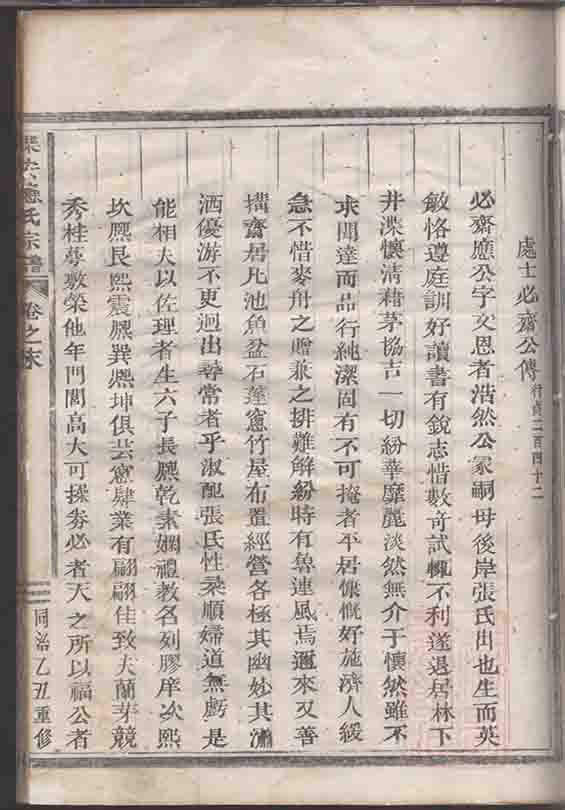 處士必齋公傳行貞二百四十二
必齋應公字文恩者浩然公冢嗣母後岸張氏出也生而英
敏恪遵庭訓好讀書有銳志惜數奇試輒不利遂退居林下
井渫懷清藉茅協吉一切紛華靡麗淡然無介于懷然雖不
求聞達而品行純潔固有不可掩者平居慷慨好施濟人緩
急不惜麥舟之贈兼之排難解紛時有魯連風焉邇來又善
搆齋居凡池魚盆石蓬窻竹屋布置經營各極其幽妙其瀟
洒優游不更迥出尋常者乎淑配張氏性柔順婦道無虧是
能相夫以佐理者生六子長熈乾素嫻禮教名列膠庠次熙
坎熈艮熙震熈巽熈坤俱芸窻肆業有翩翩佳致夫蘭芽競
秀桂蕚敷榮他年門閭高大可操券必者天之所以福公者
應氏宗譜
卷之末
同治乙丑重修